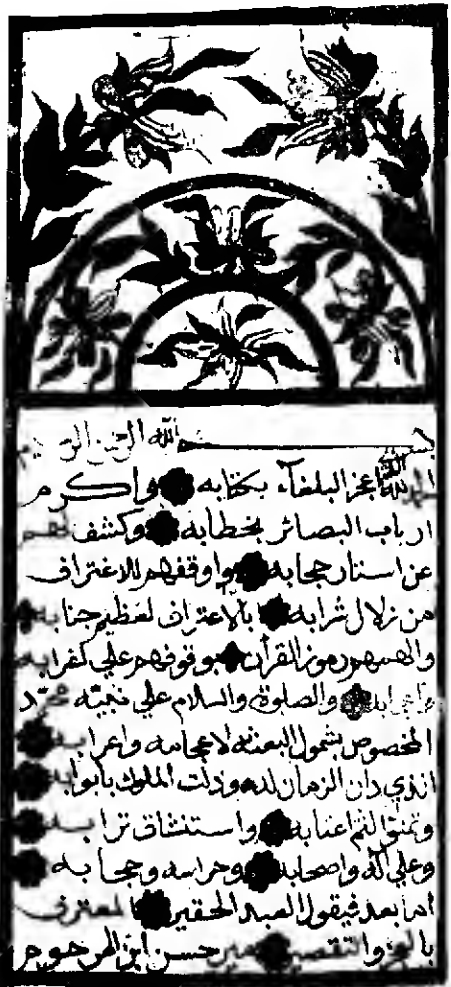 بسم الله الرحمن الرحيم
الحمد لله الذي اعجز البلغآء بكتابه واكرم
ارباب البصائر بخطابه وكشف لهم
عن استار حجابه واوقفهم للاغتراف
من زلال شرابه بالاعتراف لعظيم جنابه
والهمهم رموز القرآن بوقوفهم علي
والصلوة والسلام علي نبيّه محمّد
المخصوص بشمول البعثة لاعجامه واعرابه
الذي دان الزمان لده وذلت الملوك بابوابه
لثم اعتابه واستنشاق ترابه
وعلي آله واصحابه وحراسه وحجابه
اما بعد فيقول العبد الحقير المعترف
بالعجز والتقصير حسن ابن المرحوم